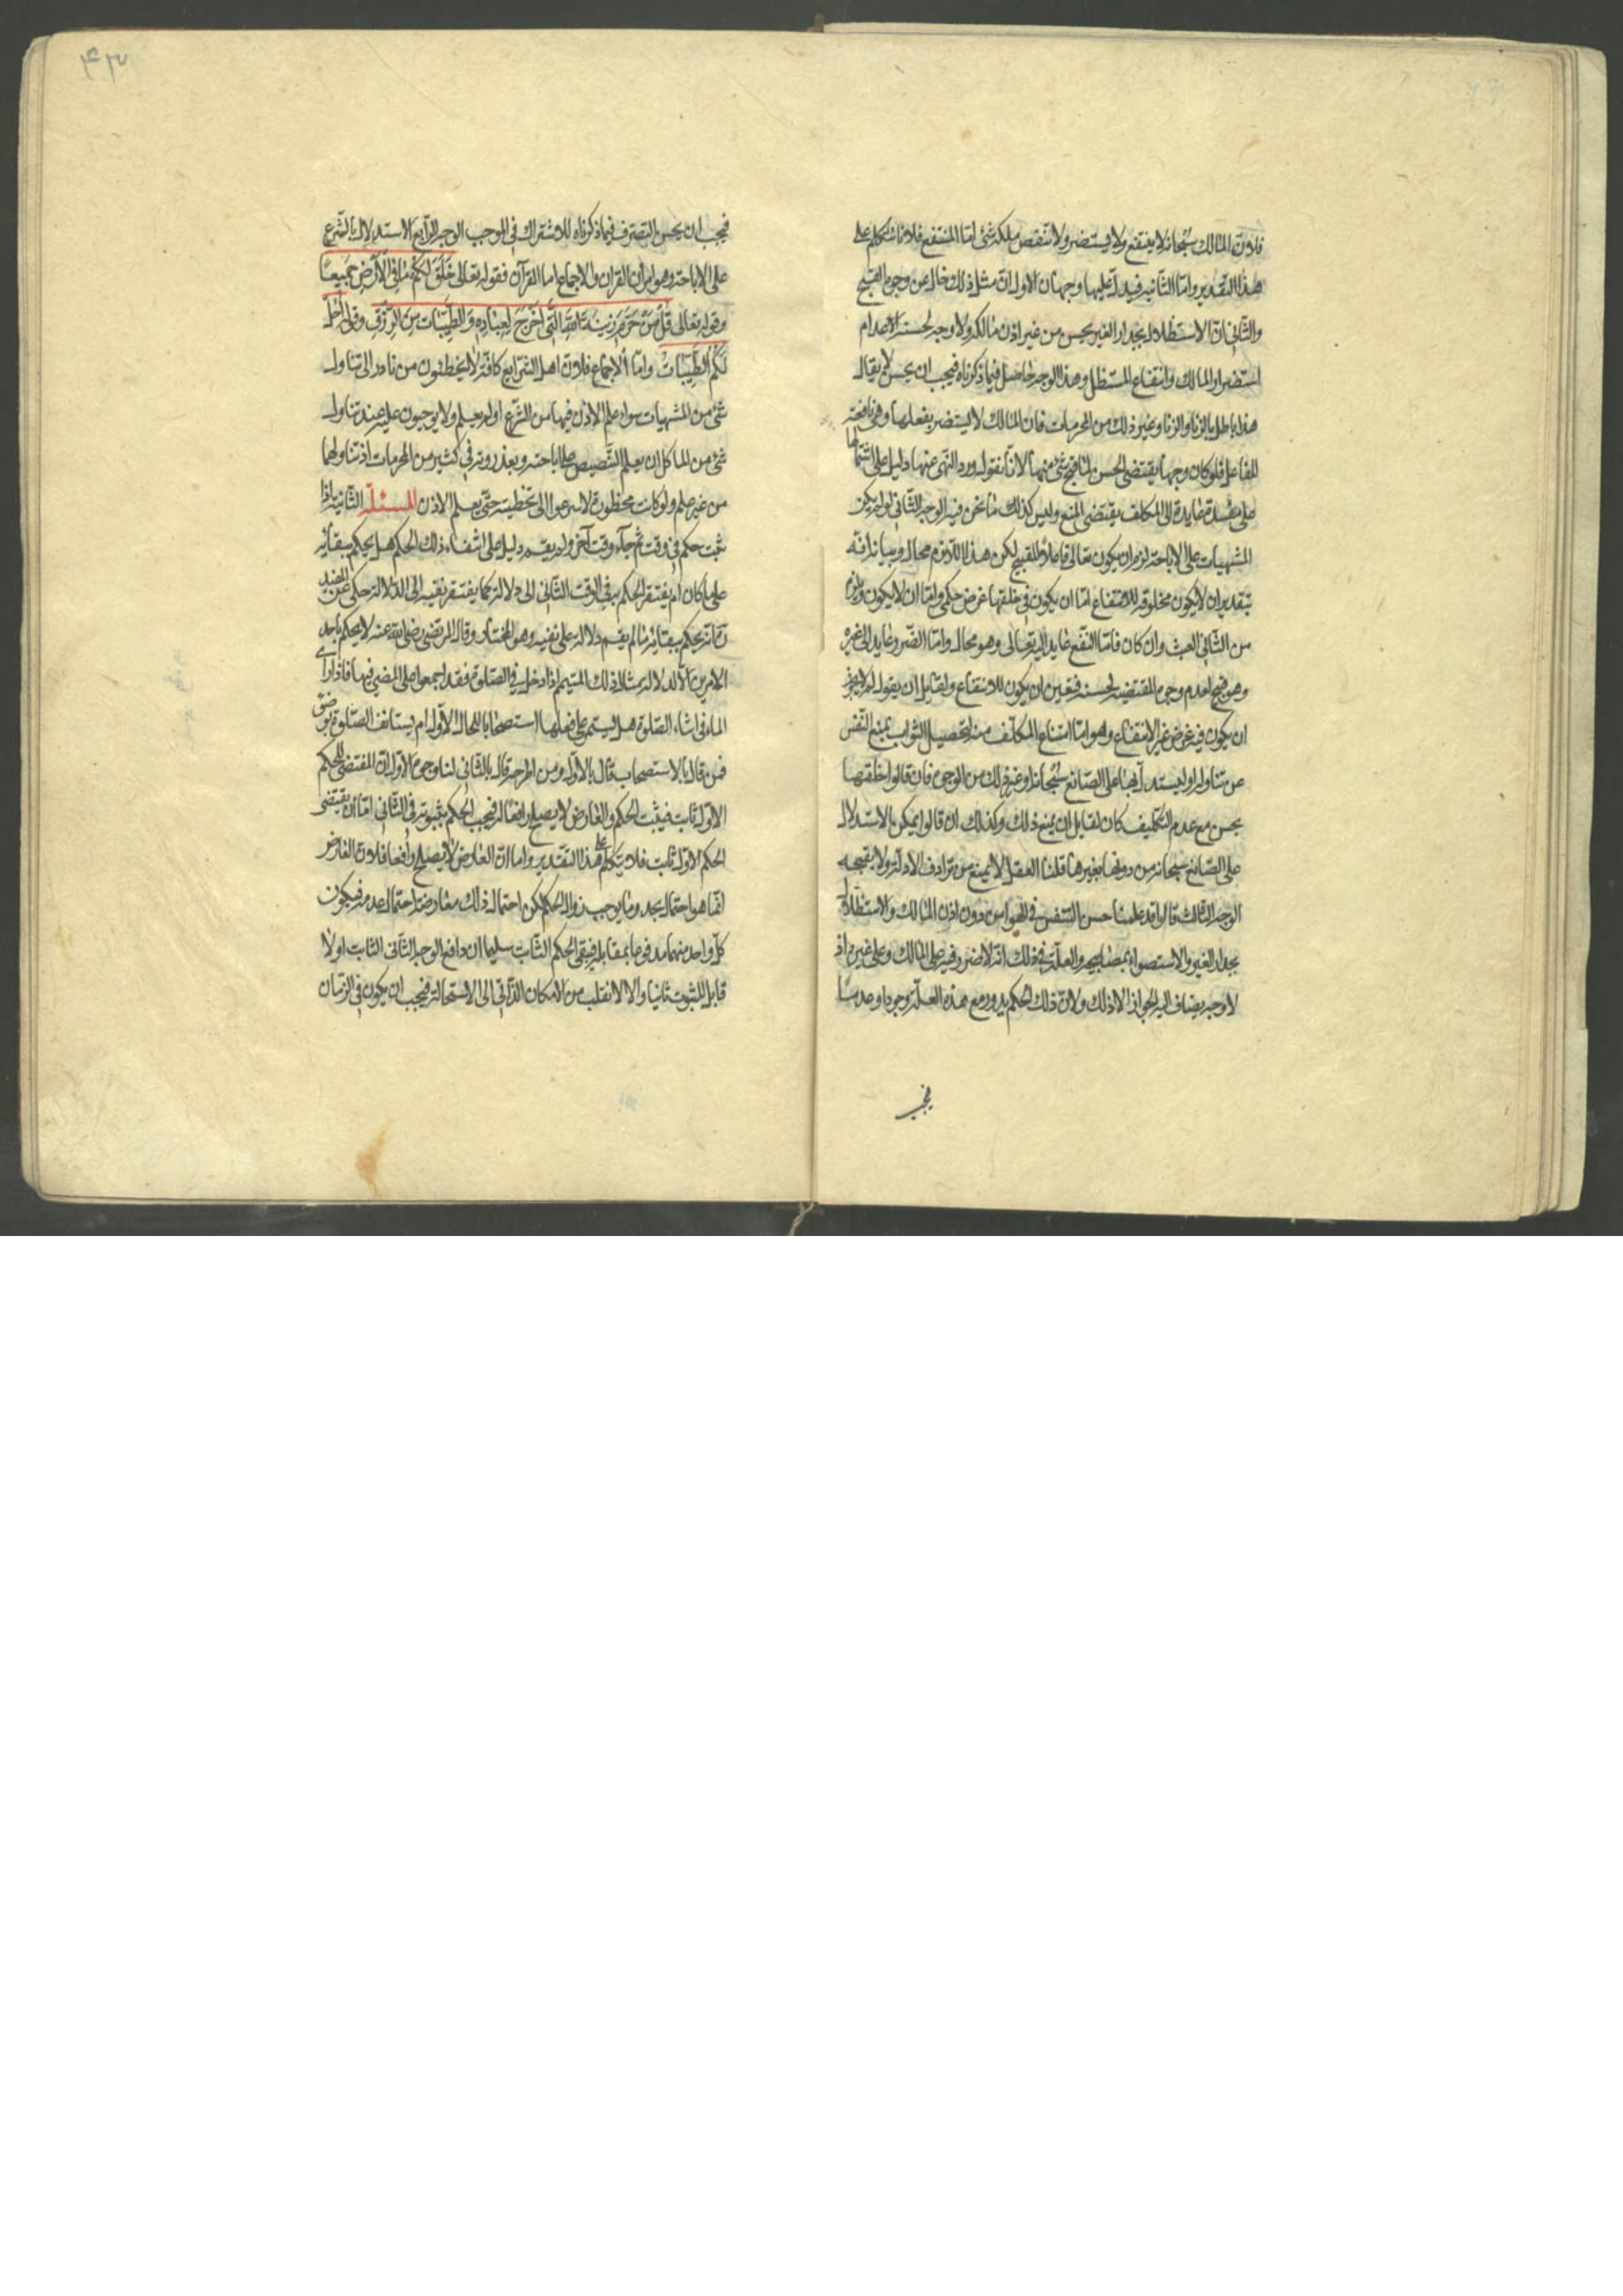 فلأن المالك سبحانه لا ينتفع ولا يستضر ولا ينتقص ملكه شئ اما المنتفع فلأنا نتكلم على
هذا التقدير واما الثانية فيدل عليها وجهان الاول ان مثل ذلك خال من وجوه القبح
والثاني ان الاستظلال بجدار الغير يحسن من غير اذن مالكه ولا وجه لحسنه الا عدم
استضرار المالك وانتفاع المستظل وهذا الوجه حاصل فيما ذكرناه فيجب ان يحسن لا يقال
هذا باطل بالزنا وغير ذلك من المحرمات فان المالك لا يستضر بفعلها وهى نافعة
للفاعل فلو كان وجها يقتضى الحسن لما قبح شئ منها لانا نقول ورد النهى عنها دليل على اشتمالها
على مفسدة عايدة الى المكلف يقتضى المنع وليس كذلك ما نحن فيه الوجه الثاني لو لم يكن
المشهيات على الاباحة لزم ان يكون تعالى فاعلا للقبيح لكن هذا اللازم محال وبيانه انه
بتقدير ان لا يكون مخلوقه للانتفاع اما ان يكون في خلقها غرض حكمى واما ان لا يكون ويلزم
من الثاني العبث وان كان فاما النفع عايد اليه تعالى وهو محال واما الضرر وعايد الى غيره
وهو قبيح لعدم وجوه المقتضية لحسنه فتعين ان يكون للانتفاع ولقايل ان يقول لم لا يجوز
ان يكون فيه غرض غير الانتفاع وهو اما امتناع المكلف منه لتحصيل الثواب بمنع النفس
عن تناوله او ليستدل بها على الصانع سبحانه او غير ذلك من الوجوه فان قالوا خلقها
يحسن مع عدم التكليف كان لقايل ان يمنع ذلك وكذلك ان قالوا يمكن الاستدلال
على الصانع سبحانه من دونها بغيرها قلنا العقل لا يمنع من ترادف الادلة ولا يقبحه
الوجه الثالث قالوا قد علمنا حسن التنفس في الهواء من دون اذن المالك والاستظلال
بجدار الغير والاستضواء بمصباحه والعلة في ذلك انه لا ضرر فيه على المالك وعلى غيره اذ
لا وجه يضاف اليه الجواز الا ذلك ولان ذلك الحكم يدور مع هذه العلة وجودا وعدما
فيجب
فيجب ان يحسن التصرف فيما ذكرناه للاشتراك في الموجب الوجه الرابع الاستدلال بالشرع
على الاباحة وهو امران القران والاجماع اما القرآن فقوله تعالى خَلَقَ لَكُمْ مَا فِي الْأَرْضِ جَمِيعًا
وقوله تعالى قُلْ مَنْ حَرَّمَ زِينَةَ اللهِ الَّتِي أَخْرَجَ لِعِبَادِهِ وَالطَّيِّبَاتِ مِنَ الرِّزْقِ وقوله أُحِلَّ
لَكُمُ الطَّيِّبَاتُ واما الاجماع فلأن اهل الشرايع كافة لا يخطئون من بادر الى تناول
شئ من المشهيات سواء علم الاذن فيها من الشرع او لم يعلم ولا يوجبون عليه عند تناول
شئ من المآكل ان يعلم التنصيص على اباحته ويعذرونه في كثير من المحرمات اذا تناولها
من غير علم ولو كانت محظورة لاسرعوا الى تخطيته حتى يعلم الاذن المسئلة الثانية اذا
ثبت حكم في وقت ثم جاء وقت آخر ولم يقم دليل على انتفاء ذلك الحكم هل يحكم ببقائه
على ما كان ام يفتقر الحكم به في الوقت الثاني الى دلالة كما يفتقر نفيه الى الدلالة حكى عن المفيد
ره انه يحكم ببقائه ما لم يقم دلالة على نفيه وهو المختار وقال المرتضى رضى الله عنه لا يحكم باحد
الامرين الا لدلالة مثال ذلك المتيمم اذا دخل في الصلوة فقد اجمعوا على المضى فيها فاذا راى
الماء في اثناء الصلوة هل يستمر على فعلها استصحابا للحال الاول ام يستانف الصلوة بوضوء
فمن قال بالاستصحاب قال بالاول ومن اطرحه قال بالثاني لنا وجوه الاول ان المقتضى للحكم
الاول ثابت فيثبت الحكم والعارض لا يصلح رافعا له فيجب الحكم بثبوته في الثاني اما ان مقتضى
الحكم الاول ثابت فلانا نتكلم على هذا التقدير واما ان العارض لا يصلح رافعا فلان العارض
انما هو احتمال تجدد ما يوجب زوال الحكم لكن احتمال ذلك معارض باحتمال عدمه فيكون
كل واحد منهما مدفوعا بمقابله فيبقى الحكم الثابت سليما ان دافع الوجه الثاني الثابت اولا
قابل للثبوت ثانيا والا لانقلب من الامكان الذاتي الى الاستحالة فيجب ان يكون في الزمان